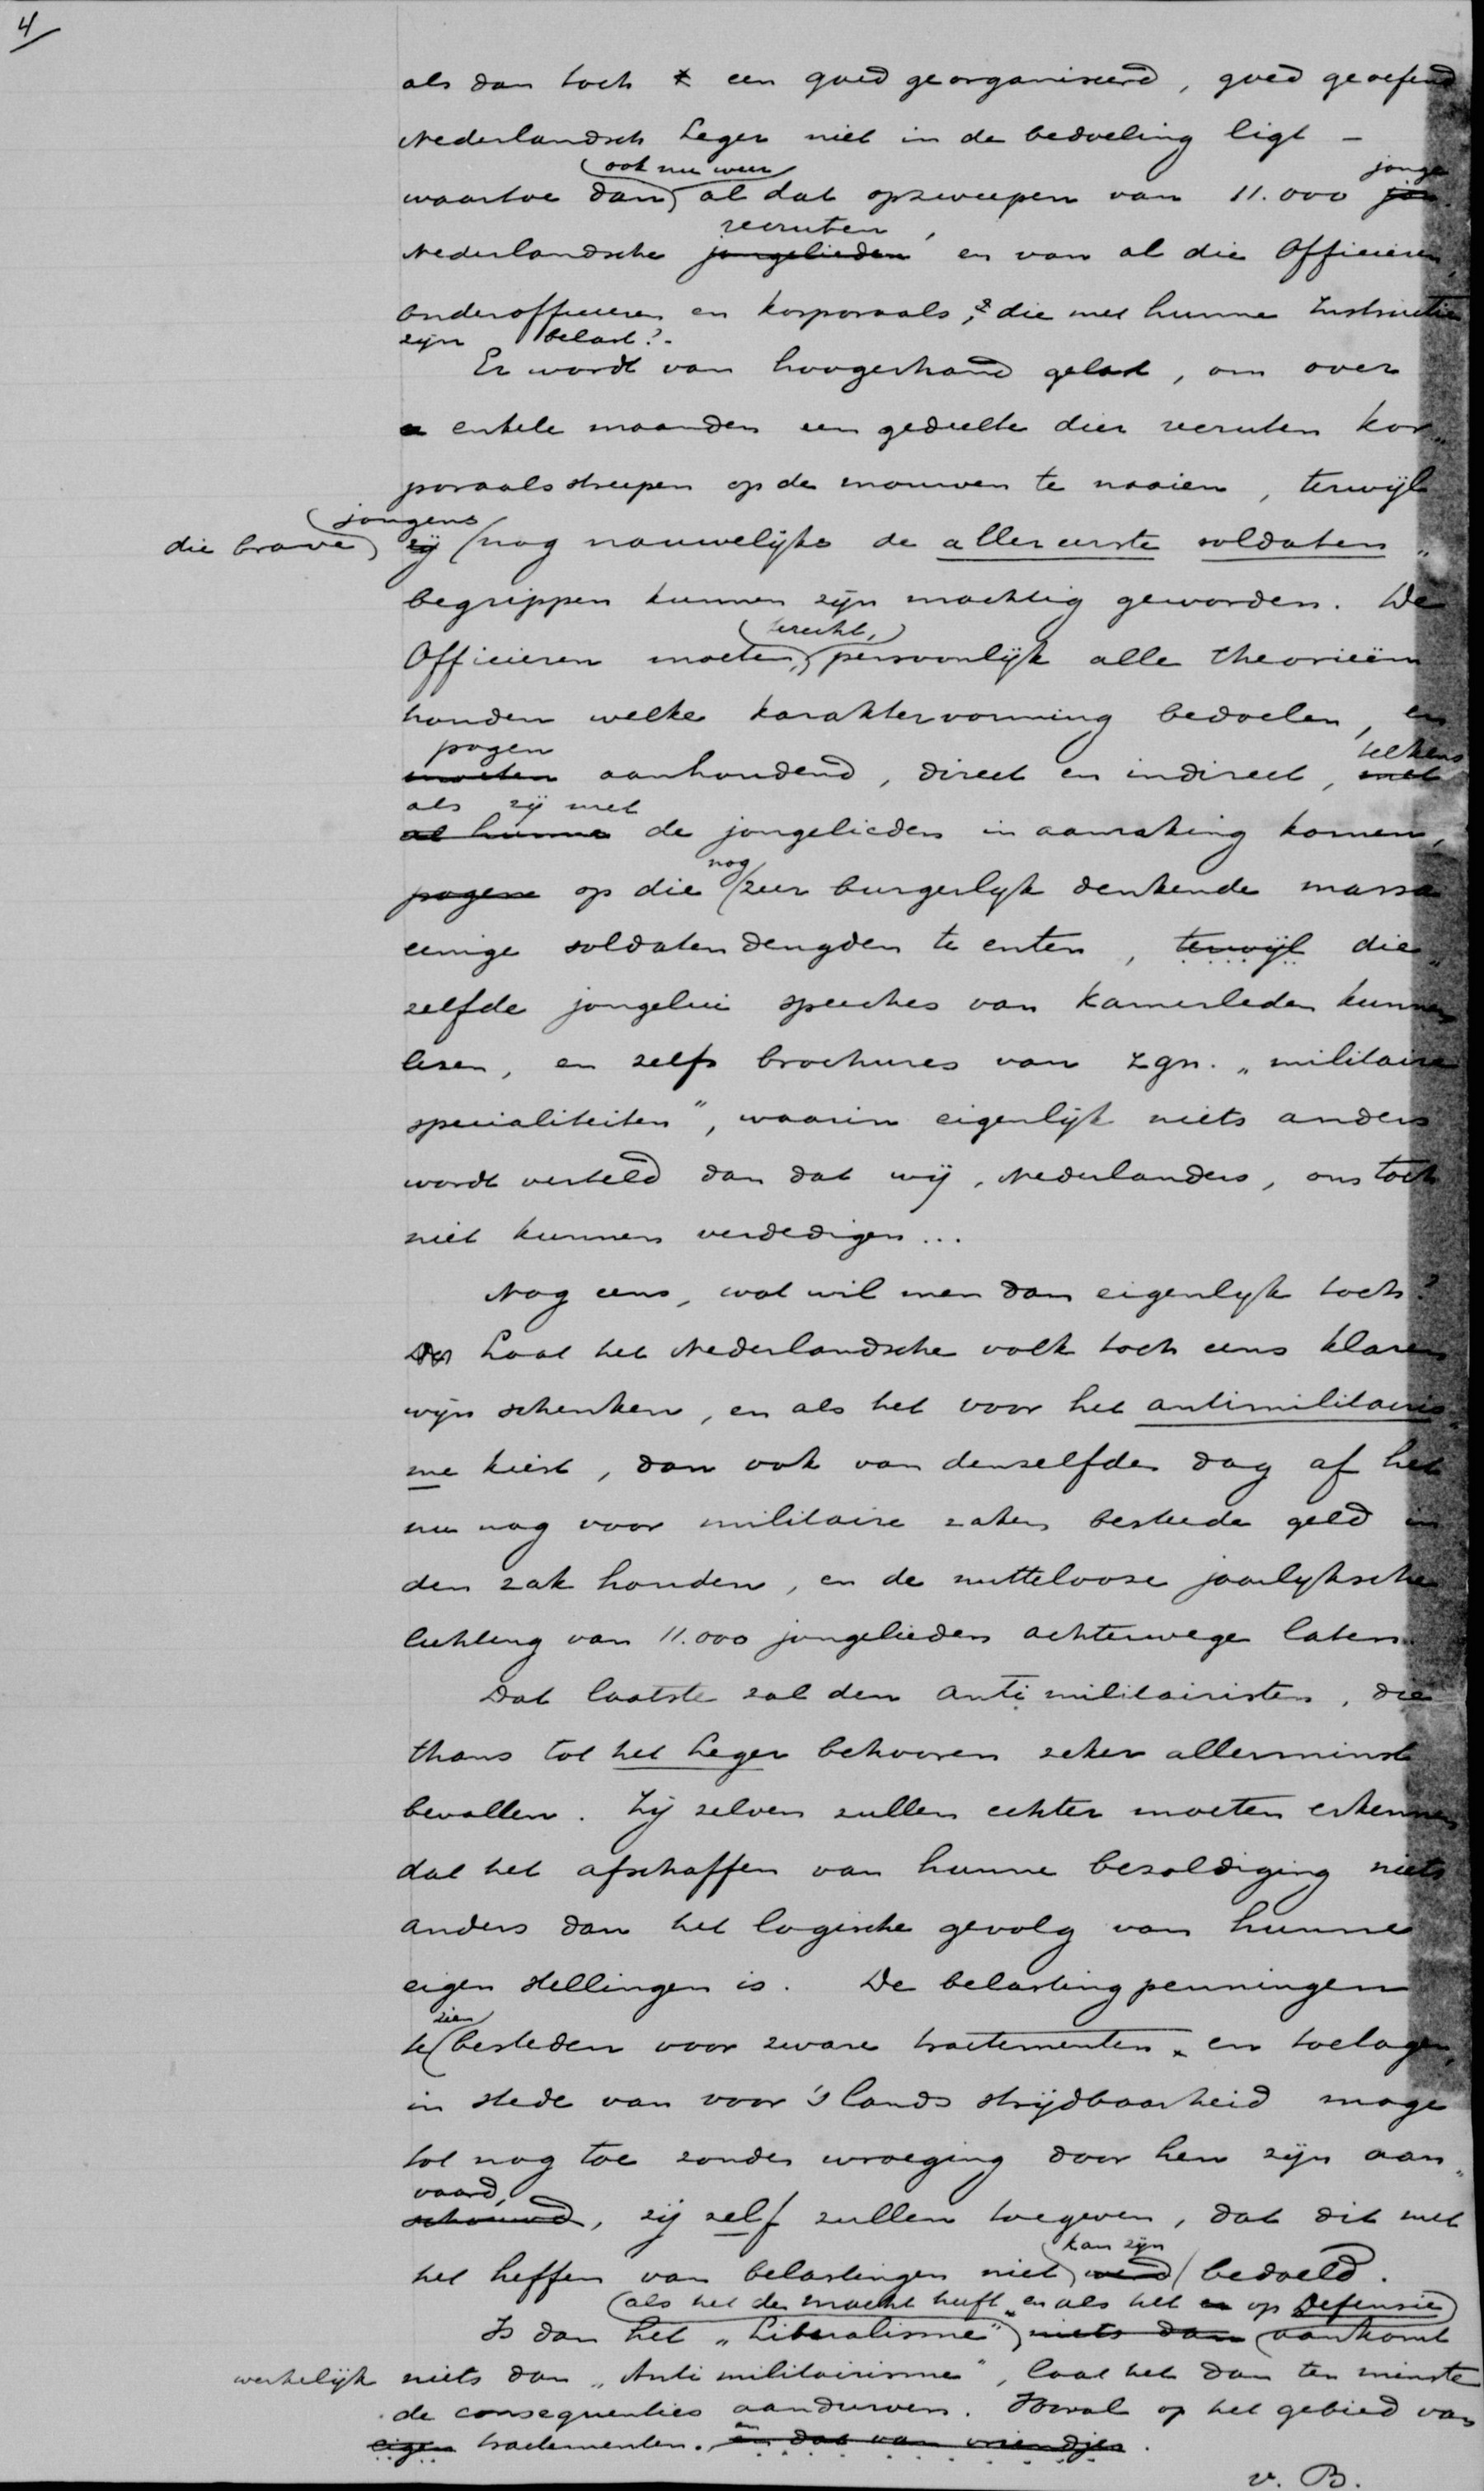 4
als dan toch een goed georganiseerd, goed geoefend
Nederlandsch Leger niet in de bedoeling ligt –
waartoe dan ook nu weer al dat opzweepen van 11.000 jonge
Nederlandsche recruten, en van al die Officieren,
onderofficieren en korporaals, die met hunne Instructie
zijn belast?
Er wordt van hoogerhand gelast, om over
enkele maanden een gedeelte dier recruten kor„
poraalsstreepen op de mouwen te naaien, terwijl
die brave jongens nog nauwelijks de allereerste soldaten„
begrippen kunnen zijn machtig geworden. De
Officieren moeten, terecht, persoonlijk alle theorieën
houden welke karaktervorming bedoelen, en
pogen aanhoudend, direct en indirect, telkens
als zij met de jongelieden in aanraking komen,
op die nog zeer burgerlijk denkende massa
eenige soldatendeugden te enten, terwijl die„
zelfde jongelui speeches van Kamerleden kunnen
lezen, en zelfs brochures van zgn. „militaire
specialiteiten", waarin eigenlijk niets anders
wordt verteld dan dat wij, Nederlanders, ons toch
niet kunnen verdedigen...
Nog eens, wat wil men dan eigenlijk toch?
Laat het Nederlandsche volk toch eens klaren
wijn schenken, en als het voor het antimilitairis„
me kiest, dan ook van denzelfden dag af het
nu nog voor militaire zaken bestede geld in
den zak houden, en de nuttelooze jaarlijksche
lichting van 11.000 jongelieden achterwege laten.
Dat laatste zal den antimilitairisten, die
thans tot het Leger behooren zeker allerminst
bevallen. Zij zelven zullen echter moeten erkennen
dat het afschaffen van hunne bezoldiging niets
anders dan het logische gevolg van hunne
eigen stellingen is. De belastingpenningen
te zien besteden voor zware tractementen en toelagen,
in stede van voor 's lands strijdbaarheid moge
tot nog toe zonder wroeging door hen zijn aan„
vaard, zij zelf zullen toegeven, dat dit met
het heffen van belastingen niet kan zijn bedoeld.
Is dan het „Liberalisme" als het de macht heeft en als het op Defensie aankomt
werkelijk niets dan „Antimilitairisme", laat het dan ten minste
de consequenties aandurven. Vooral op het gebied van
eigen tractementen. en dat van vriendjes.
v. B.